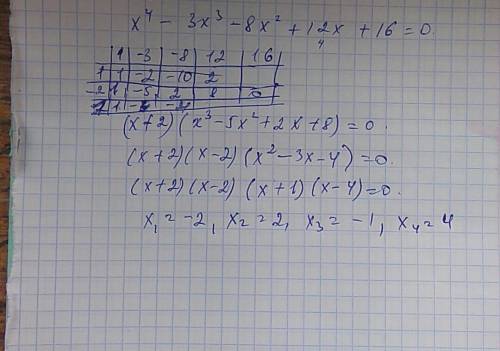 x⁴ - 3x³ - 8x² + 12x + 16 = 0
1 -3 -8 12 16
1 1 -2 -10 2
-2 1 -5 2 8 0
(x+2)(x³-5x²+2x+8)=0.
(x+2)(x-2)(x²-3x-4)=0.
(x+2)(x-2)(x+1)(x-4)=0.
x₁=-2, x₂=2, x₃=-1, x₄=4